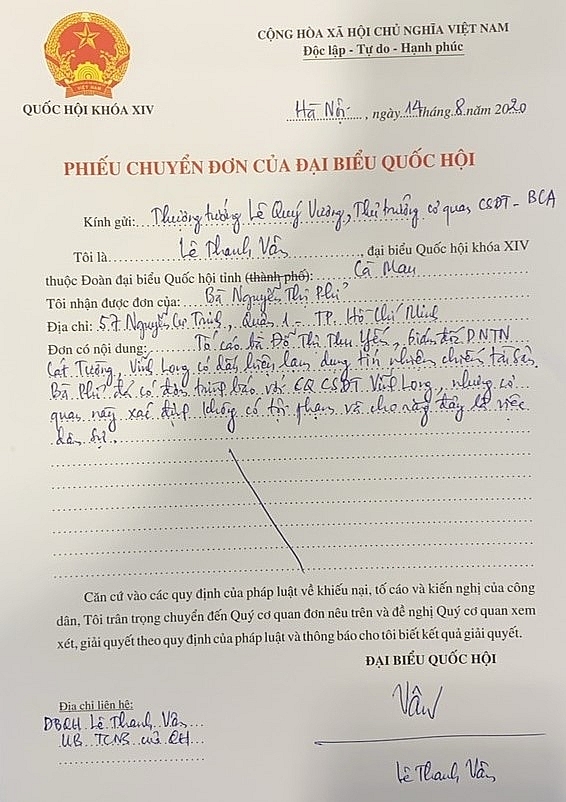 CỘNG HÒA XÃ HỘI CHỦ NGHĨA VIỆT NAM
Độc lập - Tự do - Hạnh phúc
QUỐC HỘI KHÓA XIV
Hà Nội, ngày 14 tháng 8 năm 2020
PHIẾU CHUYỂN ĐƠN CỦA ĐẠI BIỂU QUỐC HỘI
Kính gửi: Thượng tướng Lê Quý Vương, Thủ trưởng cơ quan CSĐT - BCA
Tôi là Lê Thanh Vân, đại biểu Quốc hội khóa XIV
thuộc Đoàn đại biểu Quốc hội tỉnh (thành phố): Cà Mau
Tôi nhận được đơn của: Bà Nguyễn Thị Phi
Địa chỉ: 57 Nguyễn Cư Trinh, Quận 1 - TP. Hồ Chí Minh
Đơn có nội dung: Tố cáo bà Đỗ Thị Thu Yến, Giám đốc DNTN
Cát Tường, Vĩnh Long có dấu hiệu lạm dụng tín nhiệm chiếm tài sản.
Bà Phi đã có đơn trình báo với CQ CSĐT Vĩnh Long, nhưng cơ
quan này xác định không có tội phạm và cho rằng đây là việc
dân sự.
Căn cứ vào các quy định của pháp luật về khiếu nại, tố cáo và kiến nghị của công
dân, Tôi trân trọng chuyển đến Quý cơ quan đơn nêu trên và đề nghị Quý cơ quan xem
xét, giải quyết theo quy định của pháp luật và thông báo cho tôi biết kết quả giải quyết.
ĐẠI BIỂU QUỐC HỘI
Vân
Địa chỉ liên hệ:
ĐBQH Lê Thanh Vân
UB TCNS của QH
Lê Thanh Vân